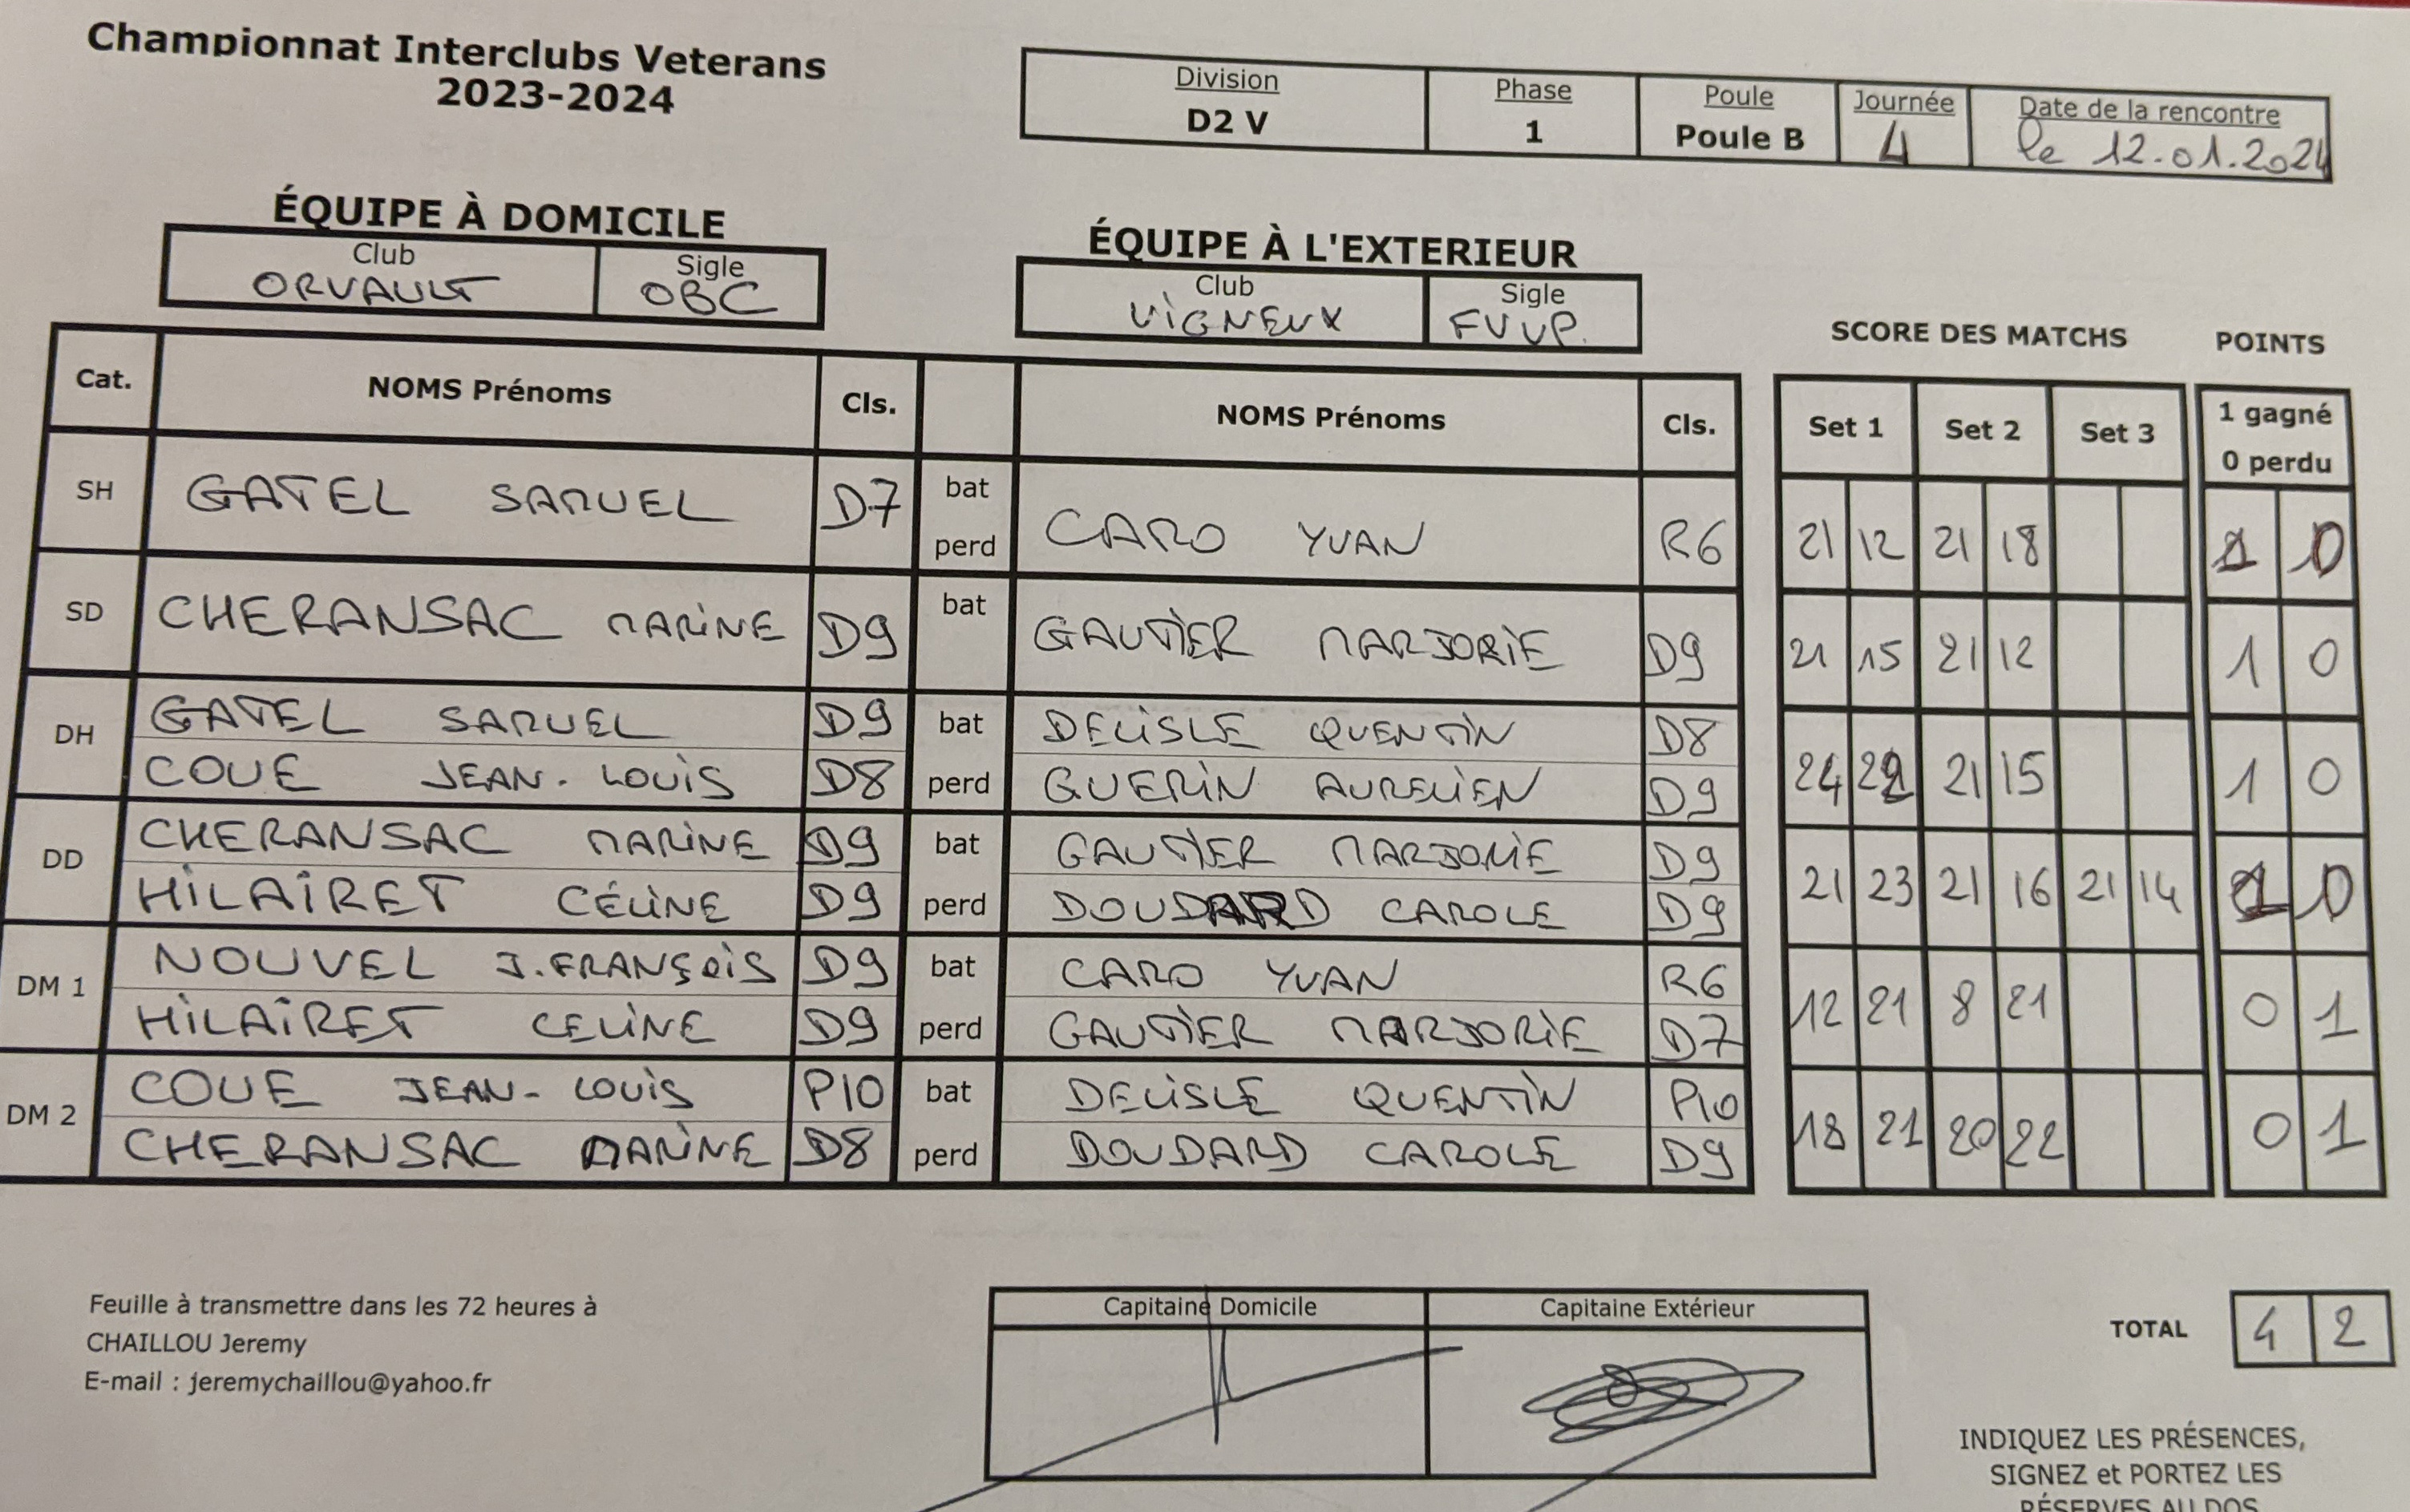 Championnat Interclubs Veterans
2023-2024
Division Phase Poule Journée Date de la rencontre
D2 V 1 Poule B 4 le 12.01.2024
ÉQUIPE À DOMICILE
Club Sigle
ORVAULT OBC
ÉQUIPE À L'EXTERIEUR
Club Sigle
ViGNEUX FVVP.
SCORE DES MATCHS POINTS
Cat. NOMS Prénoms Cls. NOMS Prénoms Cls. Set 1 Set 2 Set 3 1 gagné
0 perdu
SH GATEL SAMUEL D7 bat
perd CARO YVAN R6 21 12 21 18 1 0
SD CHERANSAC MARiNE D9 bat GAUTiER MARJORiE D9 21 15 21 12 1 0
DH GATEL SAMUEL D9 bat DELiSLE QUENTiN D8 24 22 21 15 1 0
COUE JEAN-LOUiS D8 perd GUERiN AURELiEN D9
DD CHERANSAC MARiNE D9 bat GAUTiER MARJORiE D9 21 23 21 16 21 14 1 0
HiLAiRET CÉLiNE D9 perd DOUDARD CAROLE D9
DM 1 NOUVEL J.FRANÇOiS D9 bat CARO YVAN R6 12 21 8 21 0 1
HiLAiRET CELiNE D9 perd GAUTiER MARJORiE D7
DM 2 COUE JEAN-LOUiS P10 bat DELiSLE QUENTiN P10 18 21 20 22 0 1
CHERANSAC MARiNE D8 perd DOUDARD CAROLE D9
Feuille à transmettre dans les 72 heures à
CHAILLOU Jeremy
E-mail : jeremychaillou@yahoo.fr
Capitaine Domicile Capitaine Extérieur
TOTAL 4 2
INDIQUEZ LES PRÉSENCES,
SIGNEZ et PORTEZ LES
RÉSERVES AU DOS